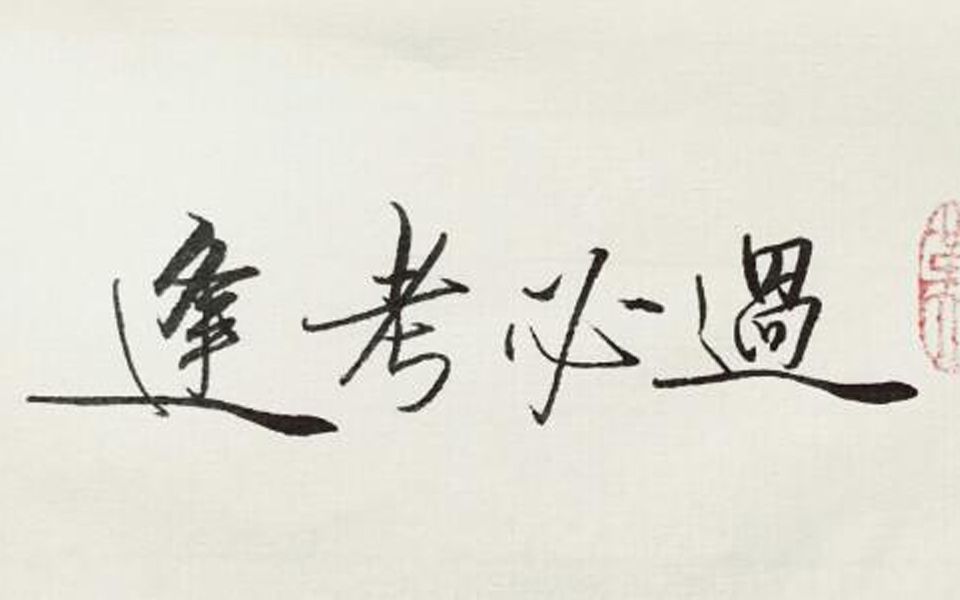 逢考必過